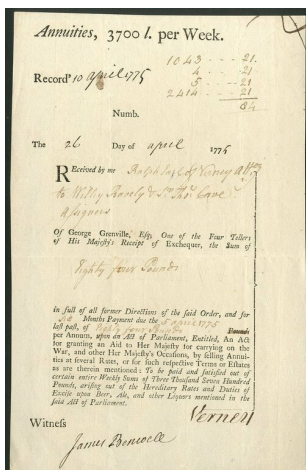 Annuities, 3700 l. per Week.
1043 - - - 21.
4 - - - 21
5 - - - 21
2414 - - - 21
84
Record' 10 april 1775
Numb.
The 26 Day of april 1775
Received by me Ralph Earl of Verney
to & Sr Thos Cave
assignees
Of George Grenville, Esq, One of the Four Tellers
of His Majesty's Receipt of Exchequer, the Sum of
Eighty four Pounds
in full of all former Directions of the said Order, and for
Six Months Payment due the 5 april 1775
last past, of Eighty four Pounds Pounds
per Annum, upon an Act of Parliament, Entitled, An Act
for granting an Aid to Her Majesty for carrying on the
War, and other Her Majesty's Occasions, by selling Annui-
ties at several Rates, or for such respective Terms or Estates
as are therein mentioned: To be paid and satisfied out of
certain entire Weekly Sums of Three Thousand Seven Hundred
Pounds, arising out of the Hereditary Rates and Duties of
Excise upon Beer, Ale, and other Liquors mentioned in the
said Act of Parliament.
Verney
Witness
James Benwell